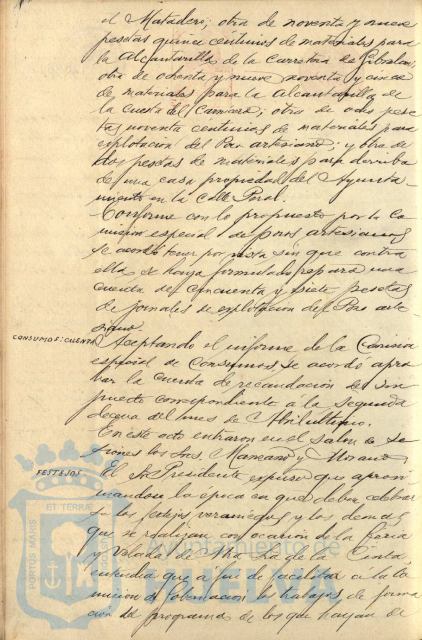 el Matadero; otra de noventa y nueve
pesetas quince céntimos de materiales para
la Alcantarilla de la Carretera de Gibraleon;
otra de ochenta y nueve noventa y cinco
de materiales para la alcantarilla de
la cuesta del Carnicero; otra de ocho pese
tas noventa centimos de materiales para
explotacion del Pozo artesiano; y otra de
dos pesetas de materiales para derribo
de una casa propiedad del Ayunta-
miento en la calle Peral.
Conforme con lo propuesto por la Co
mision especial de pozos artesianos
se acordó tener por vista sin que contra
ella se haya formulado reparo una
cuenta de cincuenta y siete pesetas
de jornales de explotacion del Pozo arte
siano.
CONSUMOS: CUENTA
Aceptando el informe de la Comision
especial de Consumos, se acordó apro
bar la cuenta de recaudacion del im
puesto correspondiente á la segunda
decena del mes de Abril ultimo.
En este acto entraron en el salon de se
siones los Sres. Manzano y
FESTEJOS
El Sr. Presidente expuso que aproxi
mandose la epoca en que deben celebrar
se los festejos veraniegos y los demas
que se realizan con ocasion de la feria
y velada de Ntra Sra de la Cinta,
entendia que a fin de facilitar a la Co
mision de Gobernacion los trabajos de forma
ción del programa de los que hayan de
PORTUS MARIS ET TERRÆ
Ayuntamiento de
HUELVA